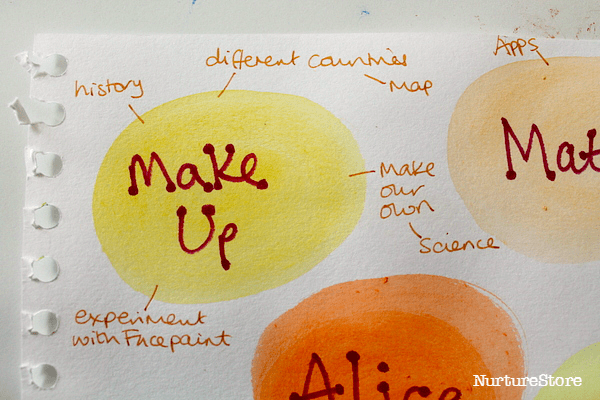 different countries
Map
history
Apps
Make
Up
Make
our
own
Science
experiment
with Facepaint
Mat
Alice
NurtureStore